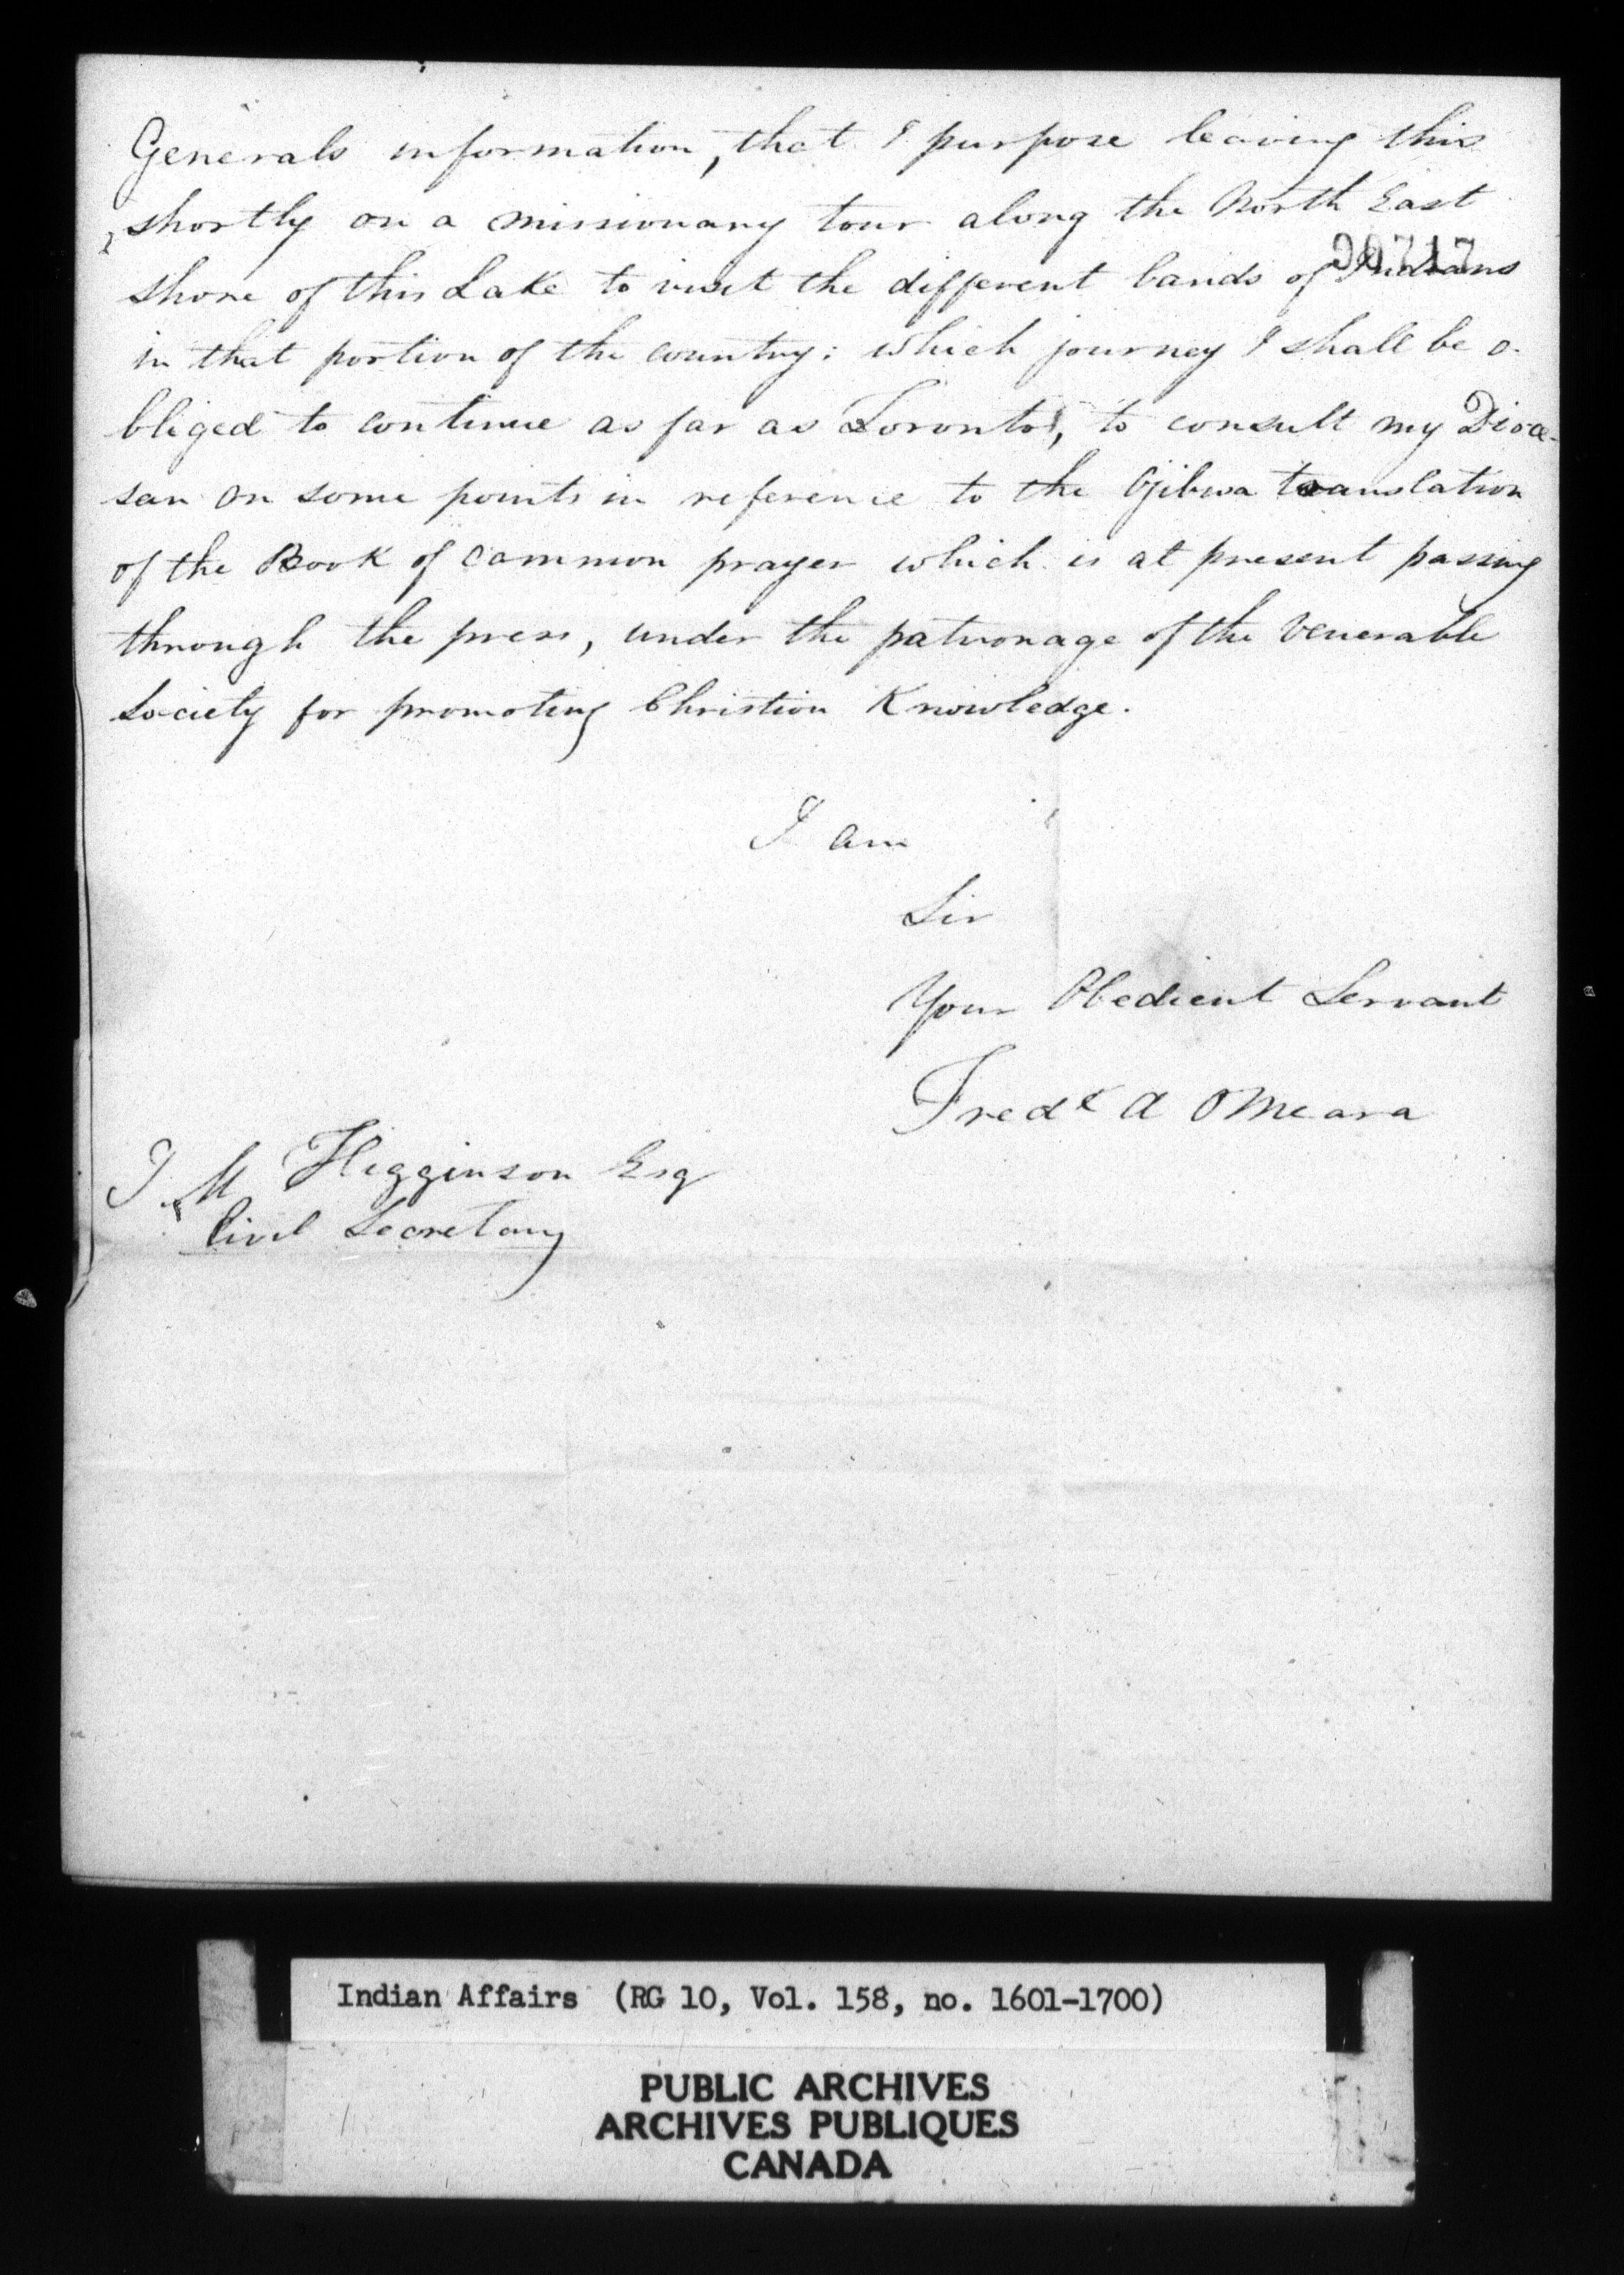 Generals information, that I purpose leaving this
shortly on a missionary tour along the North East
90717
shore of this Lake to visit the different bands of Indians
in that portion of the country; which journey I shall be o-
bliged to continue as far as Toronto, to consult my Dioce-
san on some points in reference to the Ojibwa translation
of the Book of Common prayer which is at present passing
through the press, under the patronage of the Venerable
Society for promoting Christian Knowledge.
I am
Sir
Your Obedient Servant
Fredk A OMeara
J M Higginson Esq
Civil Secretary
Indian Affairs (RG 10, Vol. 158, no. 1601-1700)
PUBLIC ARCHIVES
ARCHIVES PUBLIQUES
CANADA